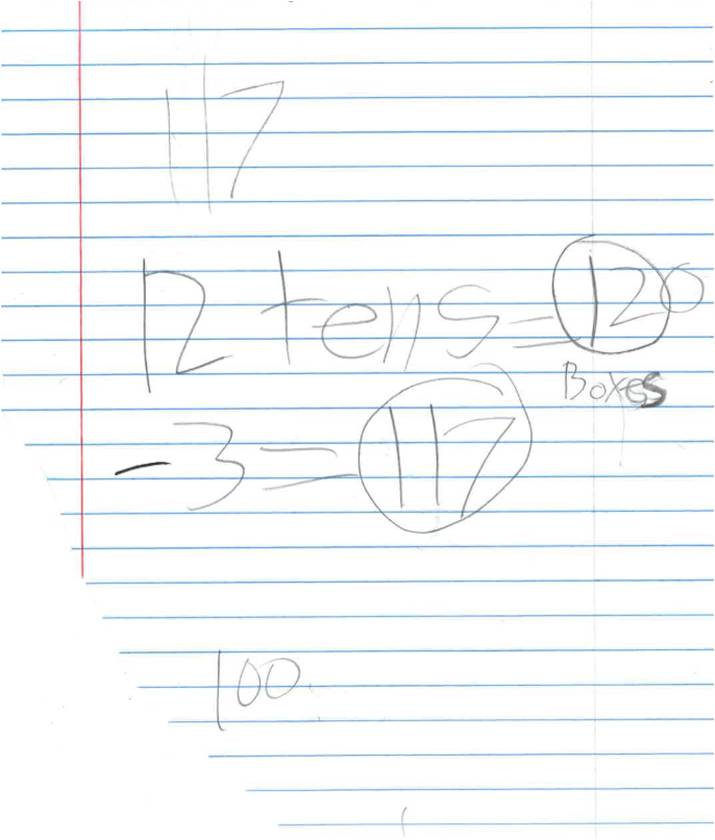 117
12 tens = 120
Boxes
- 3 = 117
100